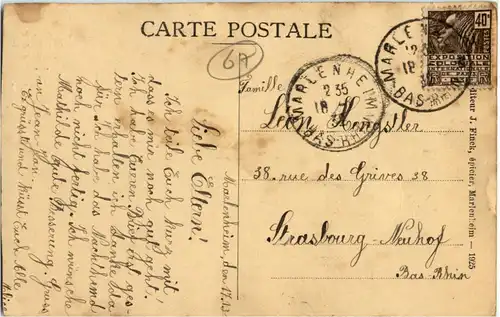 CARTE POSTALE
67
Marlenheim, den 17.
Liebe Eltern!
Ich teile Euch kurz mit
dass es mir noch gut geht.
Ich habe Euren Brief
tern erhalten ich danke
für. Ich habe das Nachthemd
noch nicht fertig. Ich wünsche
Mathilde gute Besserung.
an Jean-
grüsst und küsst Euch Alle
MARLENHEIM
12 35
18
BAS-RHIN
MARLENHEIM
2 35
18
BAS-RHIN
40c
Famille
Léon Hengstler
38. rue des Grives 38
Strasbourg - Neuhof
Bas-Rhin
Editeur J. Finck, épicier, Marlenheim — 1925